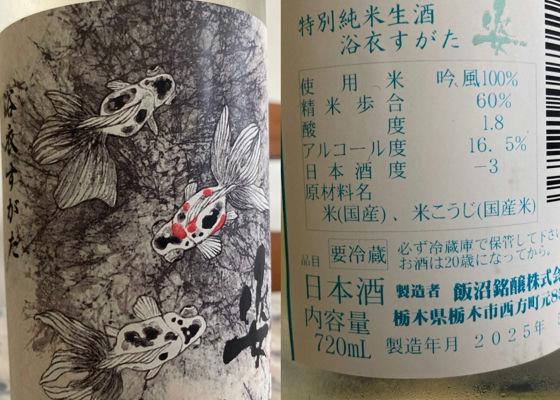 浴衣すがた
姿
特別純米生酒
浴衣すがた
姿
使用米 吟風100%
精米歩合 60%
酸度 1.8
アルコール度 16.5%
日本酒度 -3
原材料名
米(国産)、米こうじ(国産米)
品目 要冷蔵 必ず冷蔵庫で保管して下さい
お酒は20歳になってから。
日本酒 製造者 飯沼銘醸株式会
内容量 栃木県栃木市西方町元8
720mL 製造年月 2025年